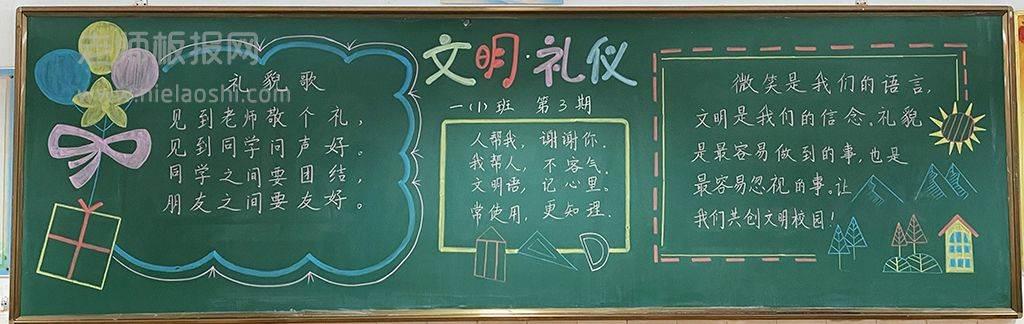 老师板报网
www.mielaoshi.com
文明·礼仪
一(1)班 第3期
礼貌歌
见到老师敬个礼，
见到同学问声好。
同学之间要团结，
朋友之间要友好。
人帮我，谢谢你.
我帮人，不客气.
文明语，记心里.
常使用，更知理.
微笑是我们的语言，
文明是我们的信念。礼貌
是最容易做到的事，也是
最容易忽视的事。让
我们共创文明校园！